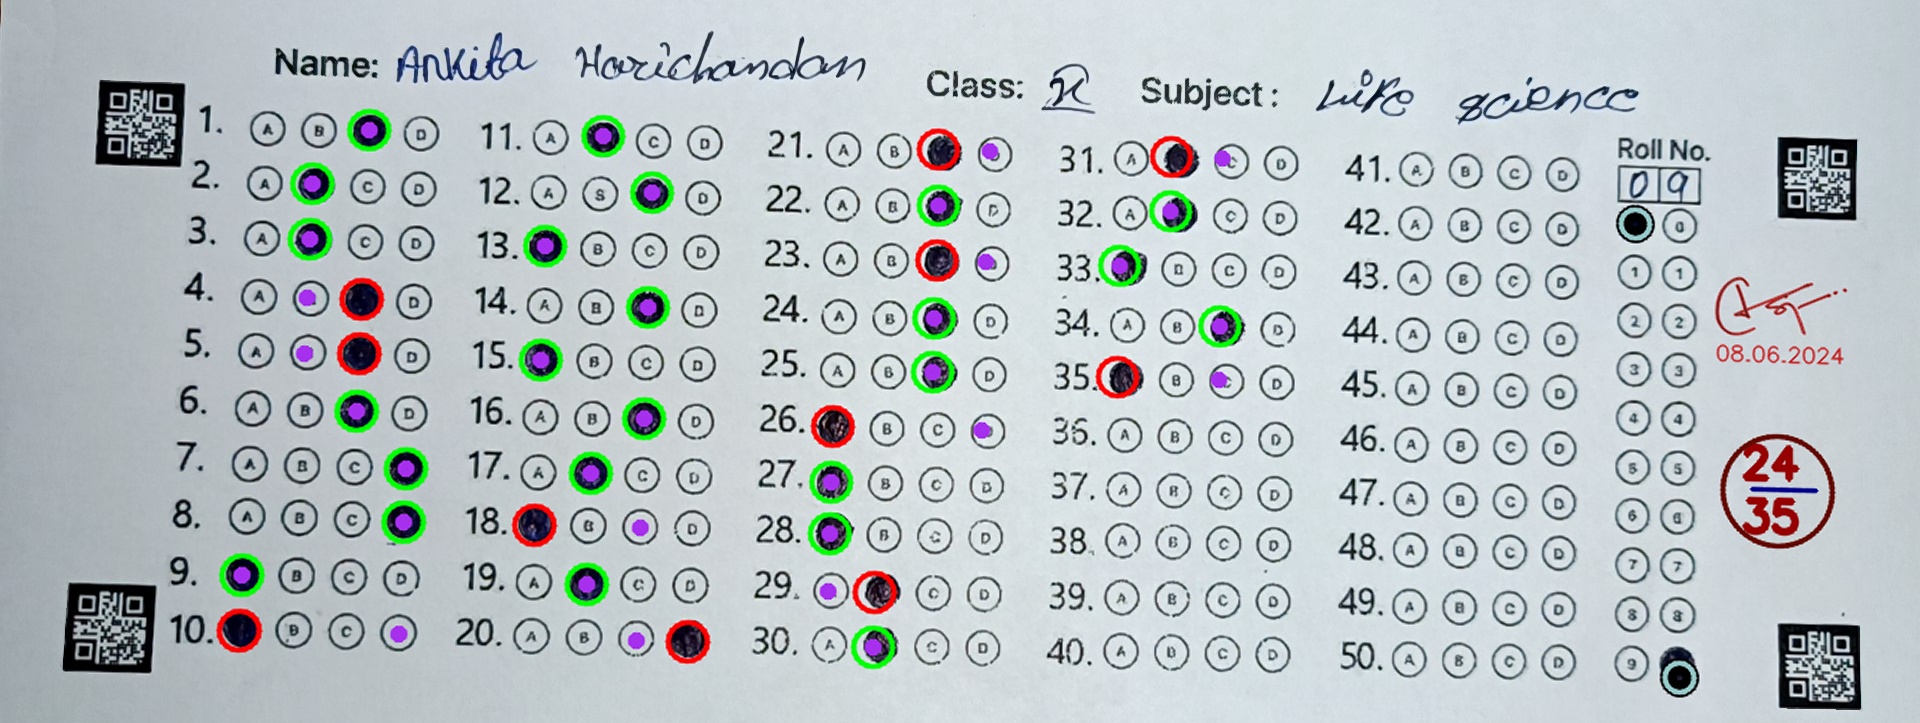 Name: Ankita Harichandan
Class: X Subject: Life science
1. A B D
2. A C D
3. A C D
4. A D
5. A D
6. A B D
7. A B C
8. A B C
9. B C D
10. B C
11. A C D
12. A S D
13. B C D
14. A B D
15. B C D
16. A B D
17. A C D
18. B D
19. A C D
20. A B
21. A B
22. A B D
23. A B
24. A B D
25. A B D
26. B C
27. B C D
28. B C D
29. C D
30. A C D
31. A C D
32. A C D
33. B C D
34. A B D
35. B C D
36. A B C D
37. A B C D
38. A B C D
39. A B C D
40. A B C D
41. A B C D
42. A B C D
43. A B C D
44. A B C D
45. A B C D
46. A B C D
47. A B C D
48. A B C D
49. A B C D
50. A B C D
Roll No.
0 9
0
1 1
2 2
3 3
4 4
5 5
6 6
7 7
8 8
9
08.06.2024
24
35